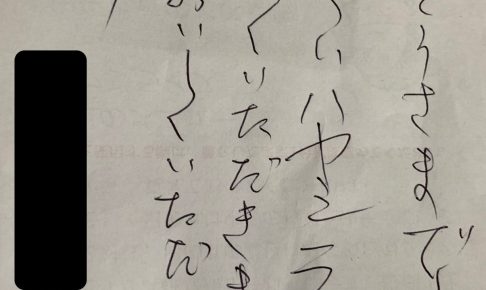 うさまで
いハヤシラ
くいただきま
いしくいただ